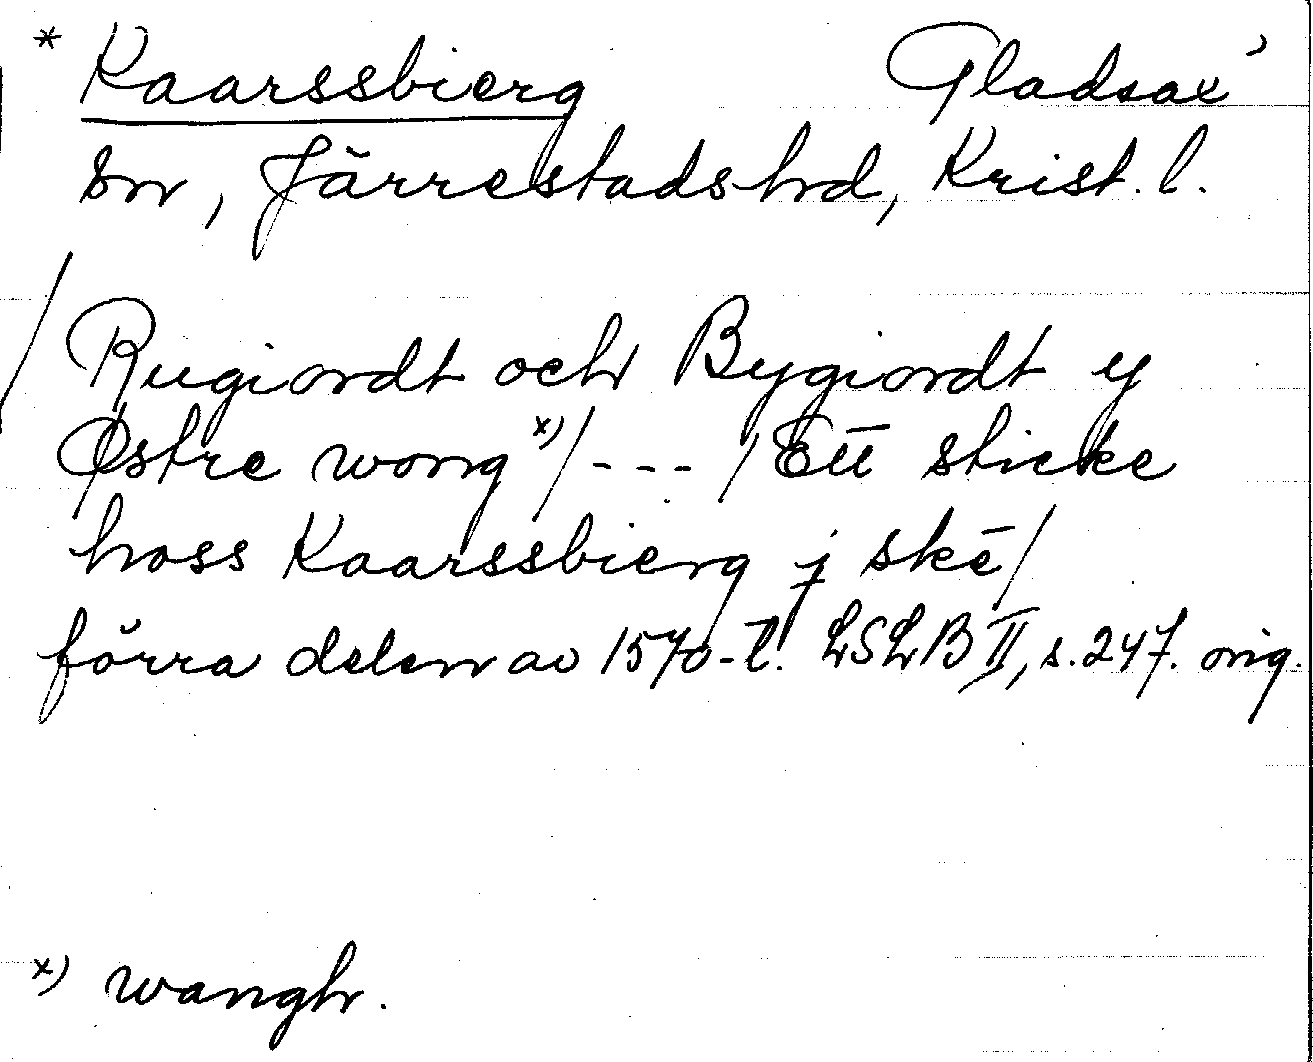 * Kaarssbierg Gladsax'
sn, Järrestads hd, Krist. l.
/Rugiordt och Bygiordt y
Østre wong x) / - - - / Ett sticke
hoss Kaarssbierg j skē/
förra delen av 1570-t. LSLB II, s. 247. orig.
x) wangh.